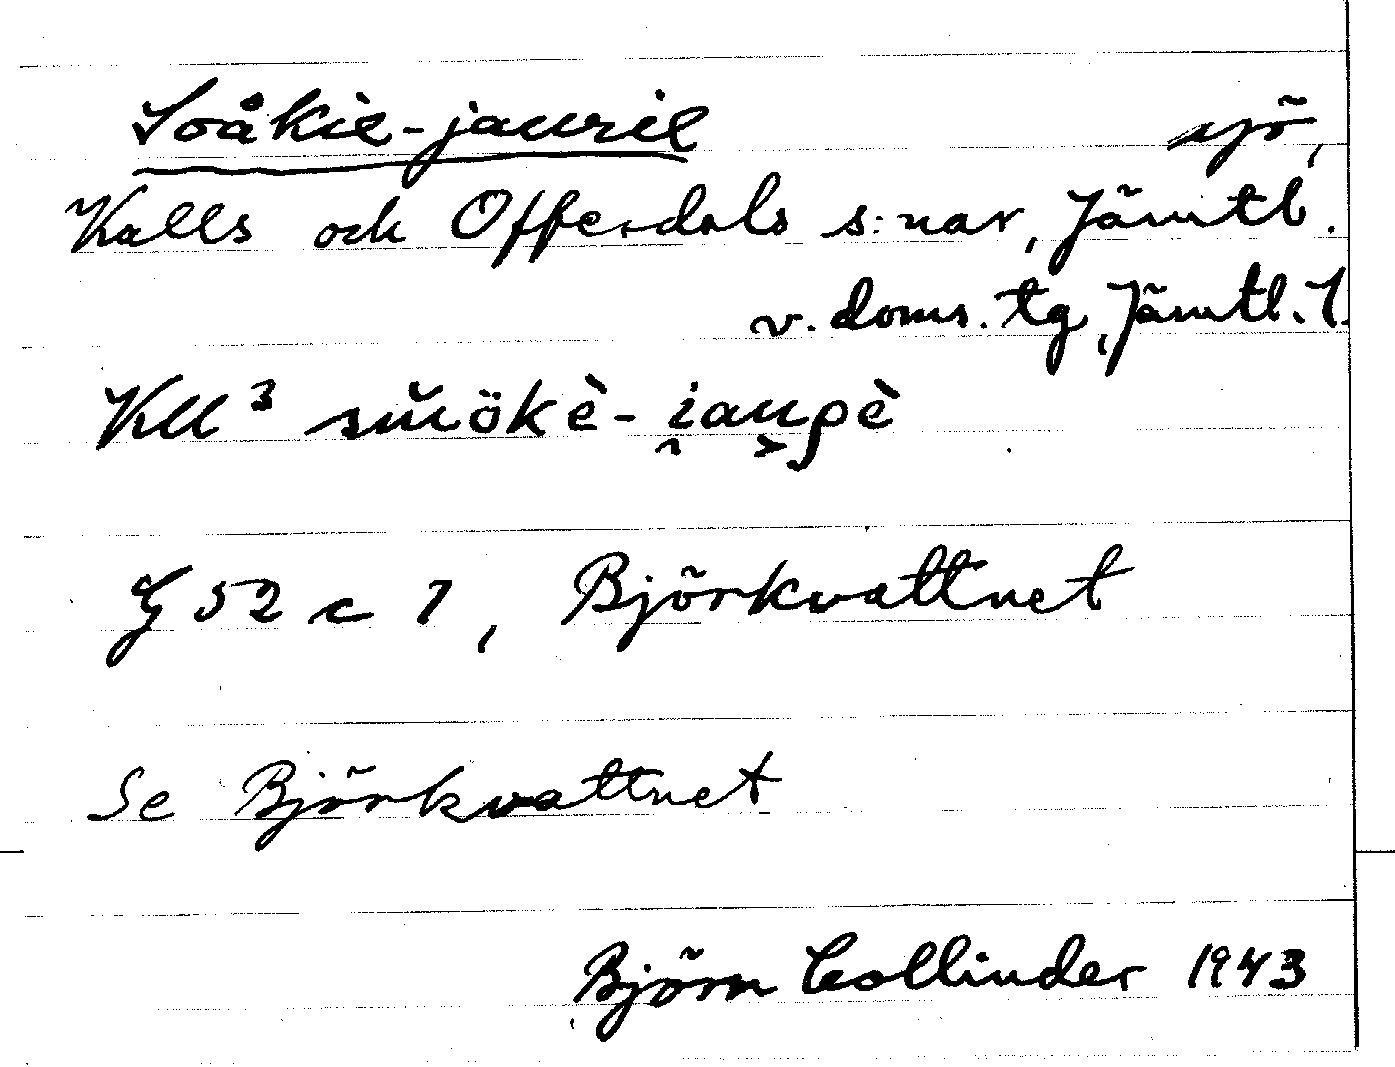 Soåkie-jaurie sjö,
Kalls och Offerdals s:nar, Jämtl.
v. doms. tg, Jämtl. l.
Kll³
G 52 c 1, Björkvattnet
Se Björkvattnet
Björn Collinder 1943